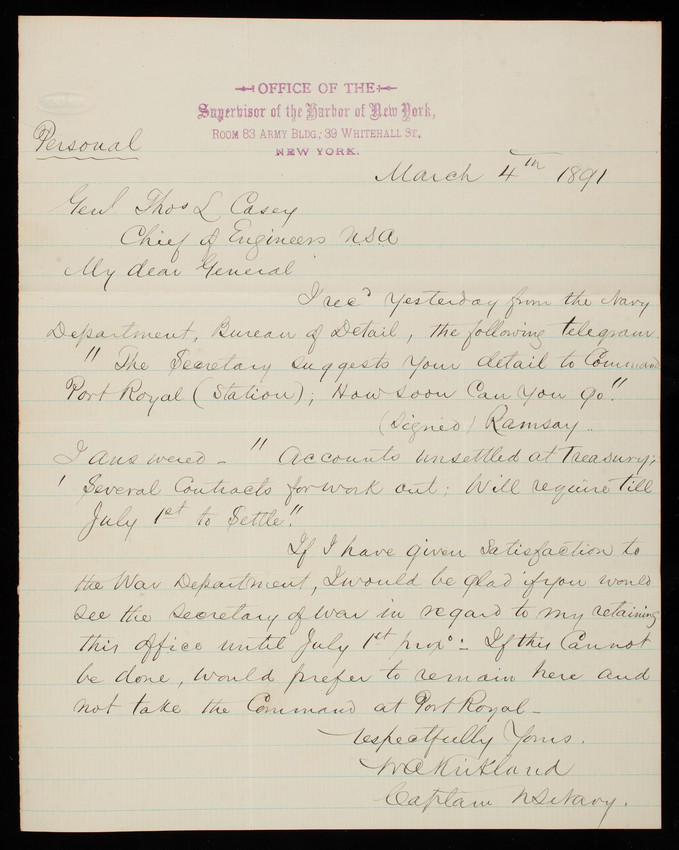 OFFICE OF THE
Supervisor of the Harbor of New York,
ROOM 83 ARMY BLDG; 39 WHITEHALL ST.,
NEW YORK.
Personal
March 4th 1891
Genl Thos L Casey
Chief of Engineers USA
My dear General
I recd yesterday from the Navy
Department, Bureau of Detail, the following telegram
" The Secretary suggests your detail to Command
Port Royal (Station); How soon Can you go."
(signed) Ramsay..
I answered - " Accounts unsettled at Treasury;
' Several Contracts for work out; Will require till
July 1st to Settle."
If I have given Satisfaction to
the War Department, I would be glad if you would
see the Secretary of War in regard to my retaining
this office until July 1st proxo: If this Cannot
be done, would prefer to remain here and
not take the Command at Port Royal -
respectfully Yours.
WA Kirkland
Captain US Navy.